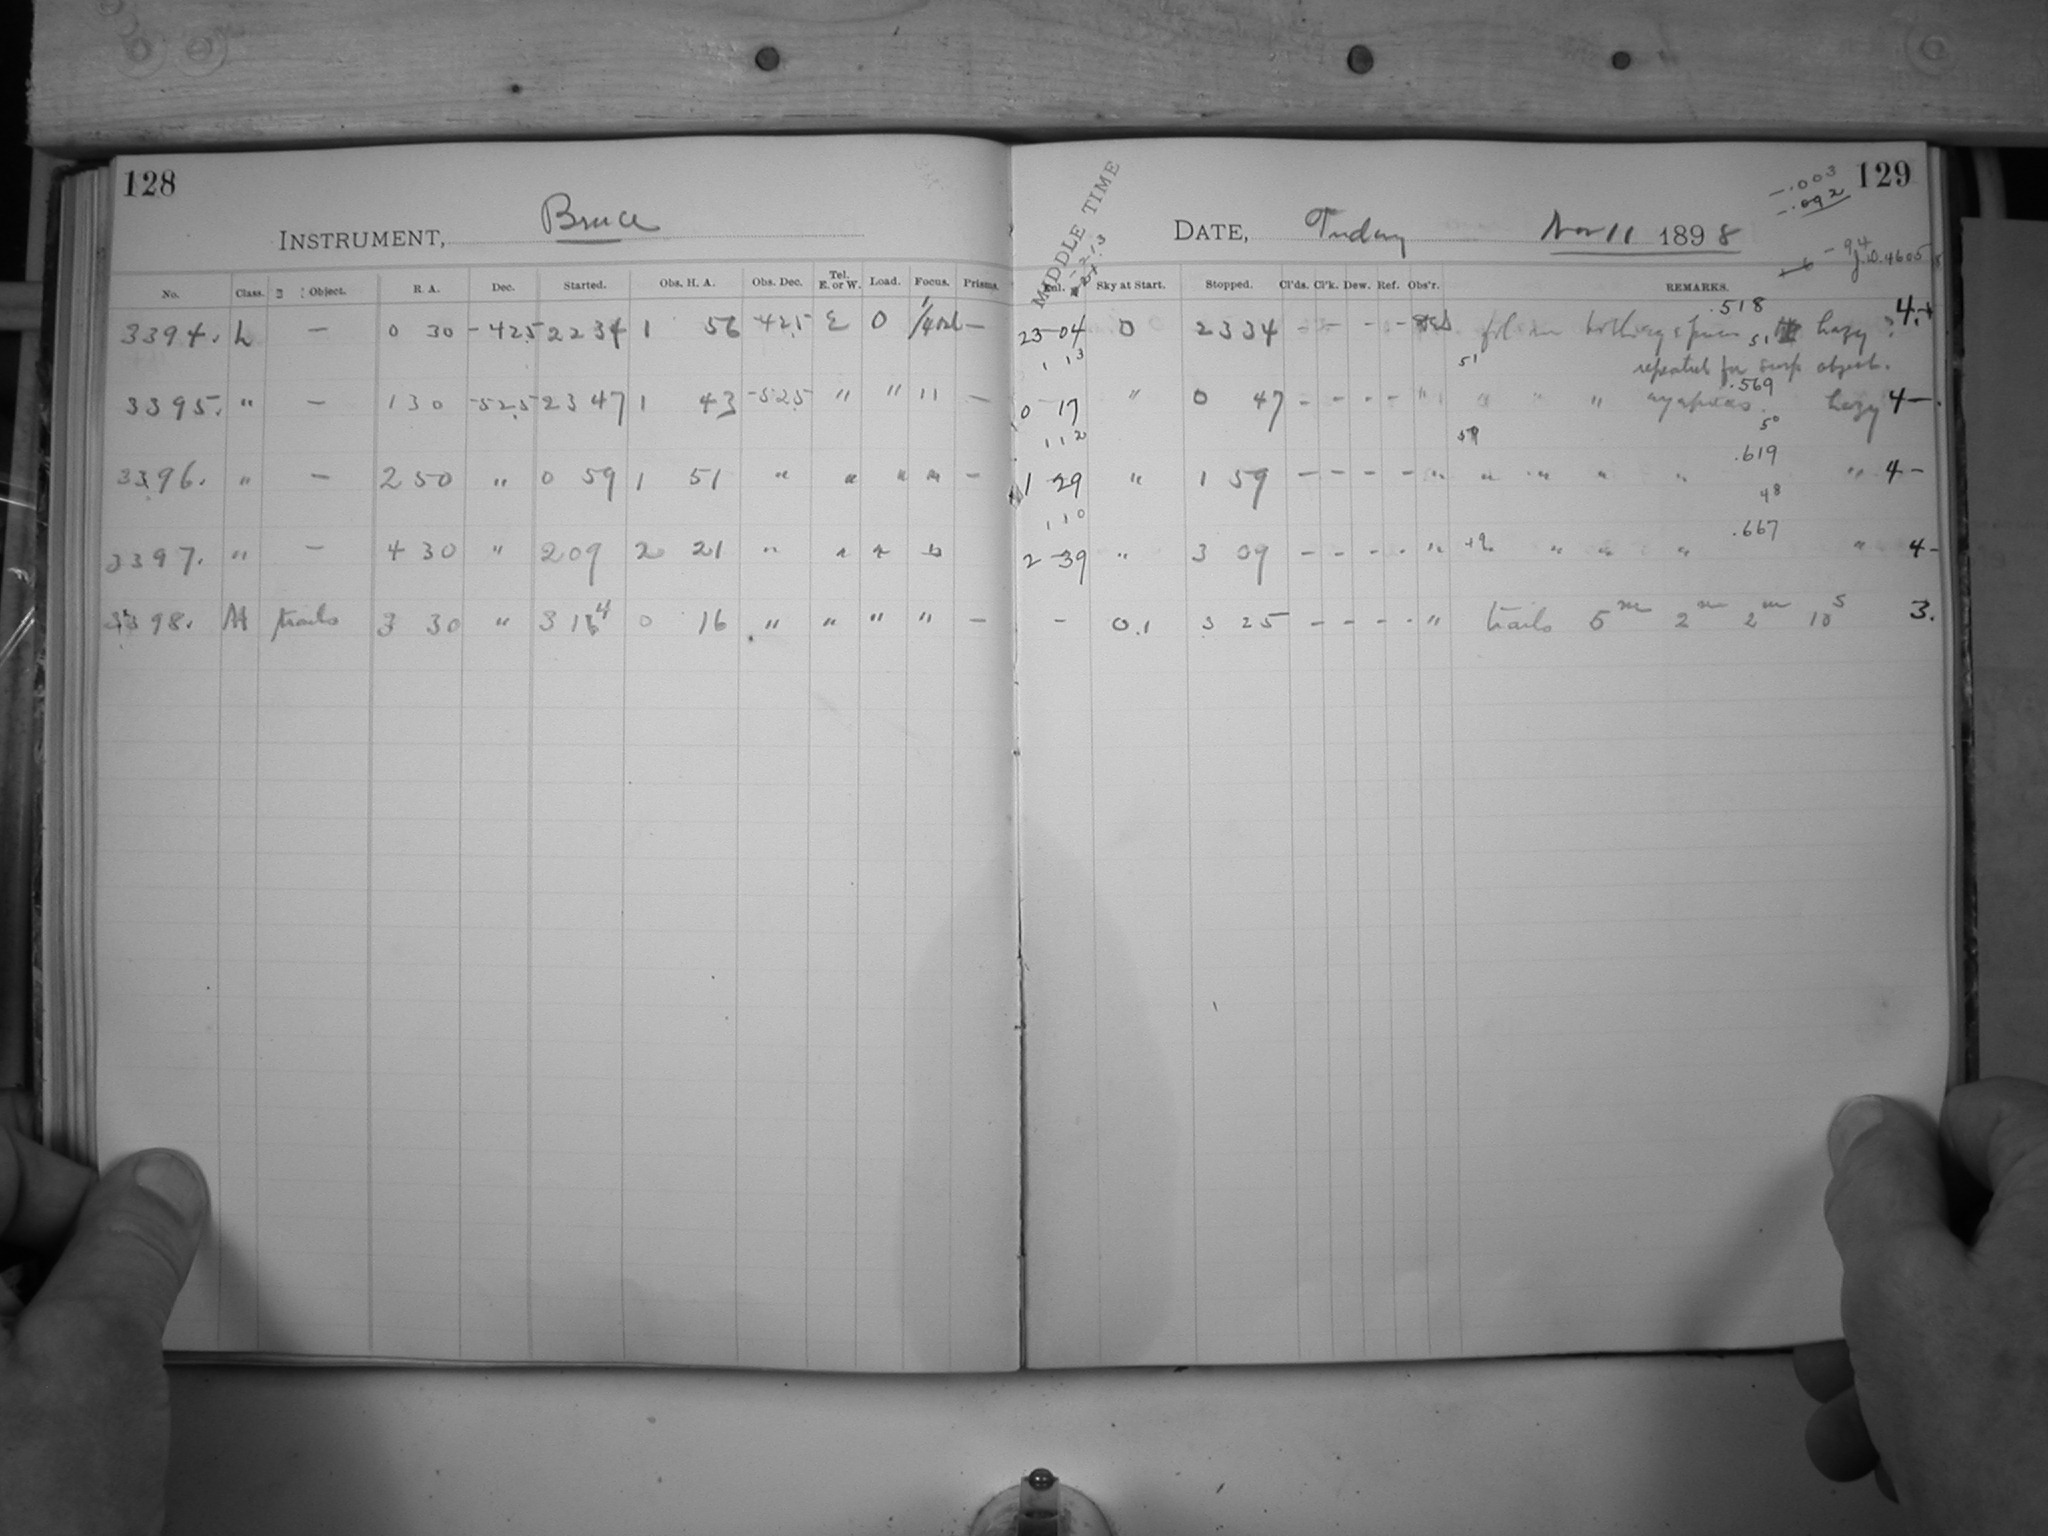 128
INSTRUMENT, Bruce
No. Class. Object. R. A. Dec. Started. Obs. H. A. Obs. Dec. Tel. E. or W. Load. Focus. Prisms.
3394. L — 0 30 -42.5 22 34 1 56 -42.5 E 0 —
3395. " — 1 30 -52.5 23 47 1 43 -52.5 " " " —
3396. " — 2 50 " 0 59 1 51 " " " " —
3397. " — 4 30 " 2 09 2 21 " " "
3398. trails 3 30 " 3 0 16 " " " " —
129
-.003
-.092
MIDDLE TIME
DATE, Friday Nov 11 1898
-94
J.D. 4605
Sky at Start. Stopped. Cl'ds. Cl'k. Dew. Ref. Obs'r. REMARKS.
.518
23-04 0 23 34 - - - - hazy ? 4.+
1 13 51 repeated for susp object.
.569
0 17 " 0 47 - - - - " " " " hazy 4 —.
1 12 50
.619
1 29 " 1 59 - - - - " " " " " " 4 -
1 10 48
.667
2 39 " 3 09 - - - - " " " " " 4 -
- 0.1 3 25 - - - - " trails 5m 2m 2m 10s 3.